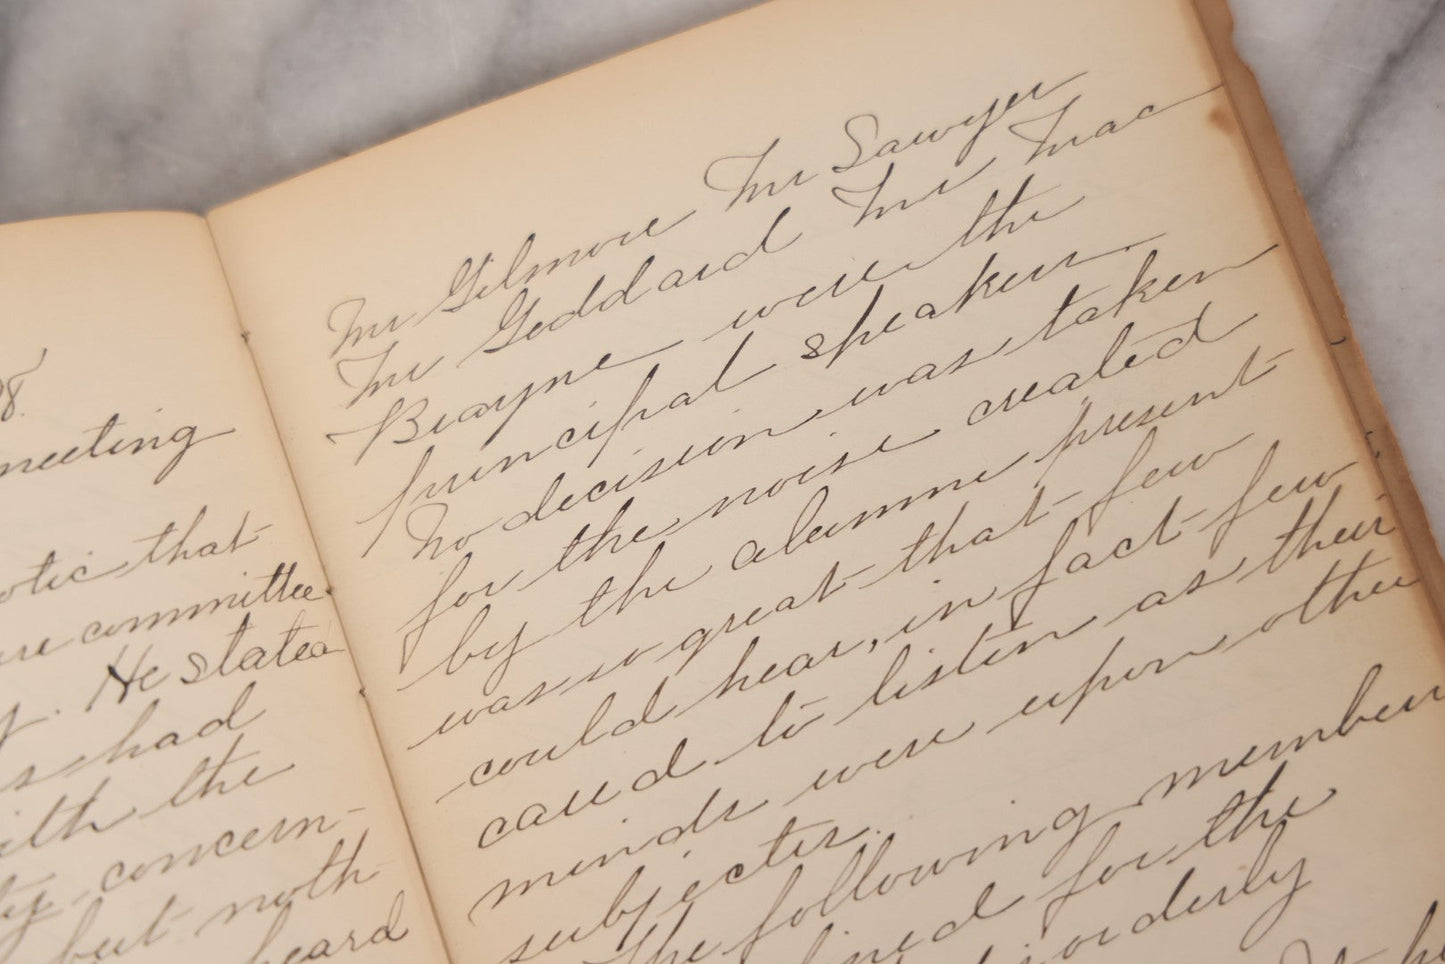 98.
meeting
that
committee
He stated
had
with the
concern-
but noth-
heard
Mr Gilmore Mr Sawyer
Mr Goddard Mr Mac
Brayne were the
principal speakers.
No decision was taken
for the noise created
by the alumni present
was so great that few
could hear, in fact few
cared to listen as their
minds were upon other
subjects.
The following members
for the
disorderly